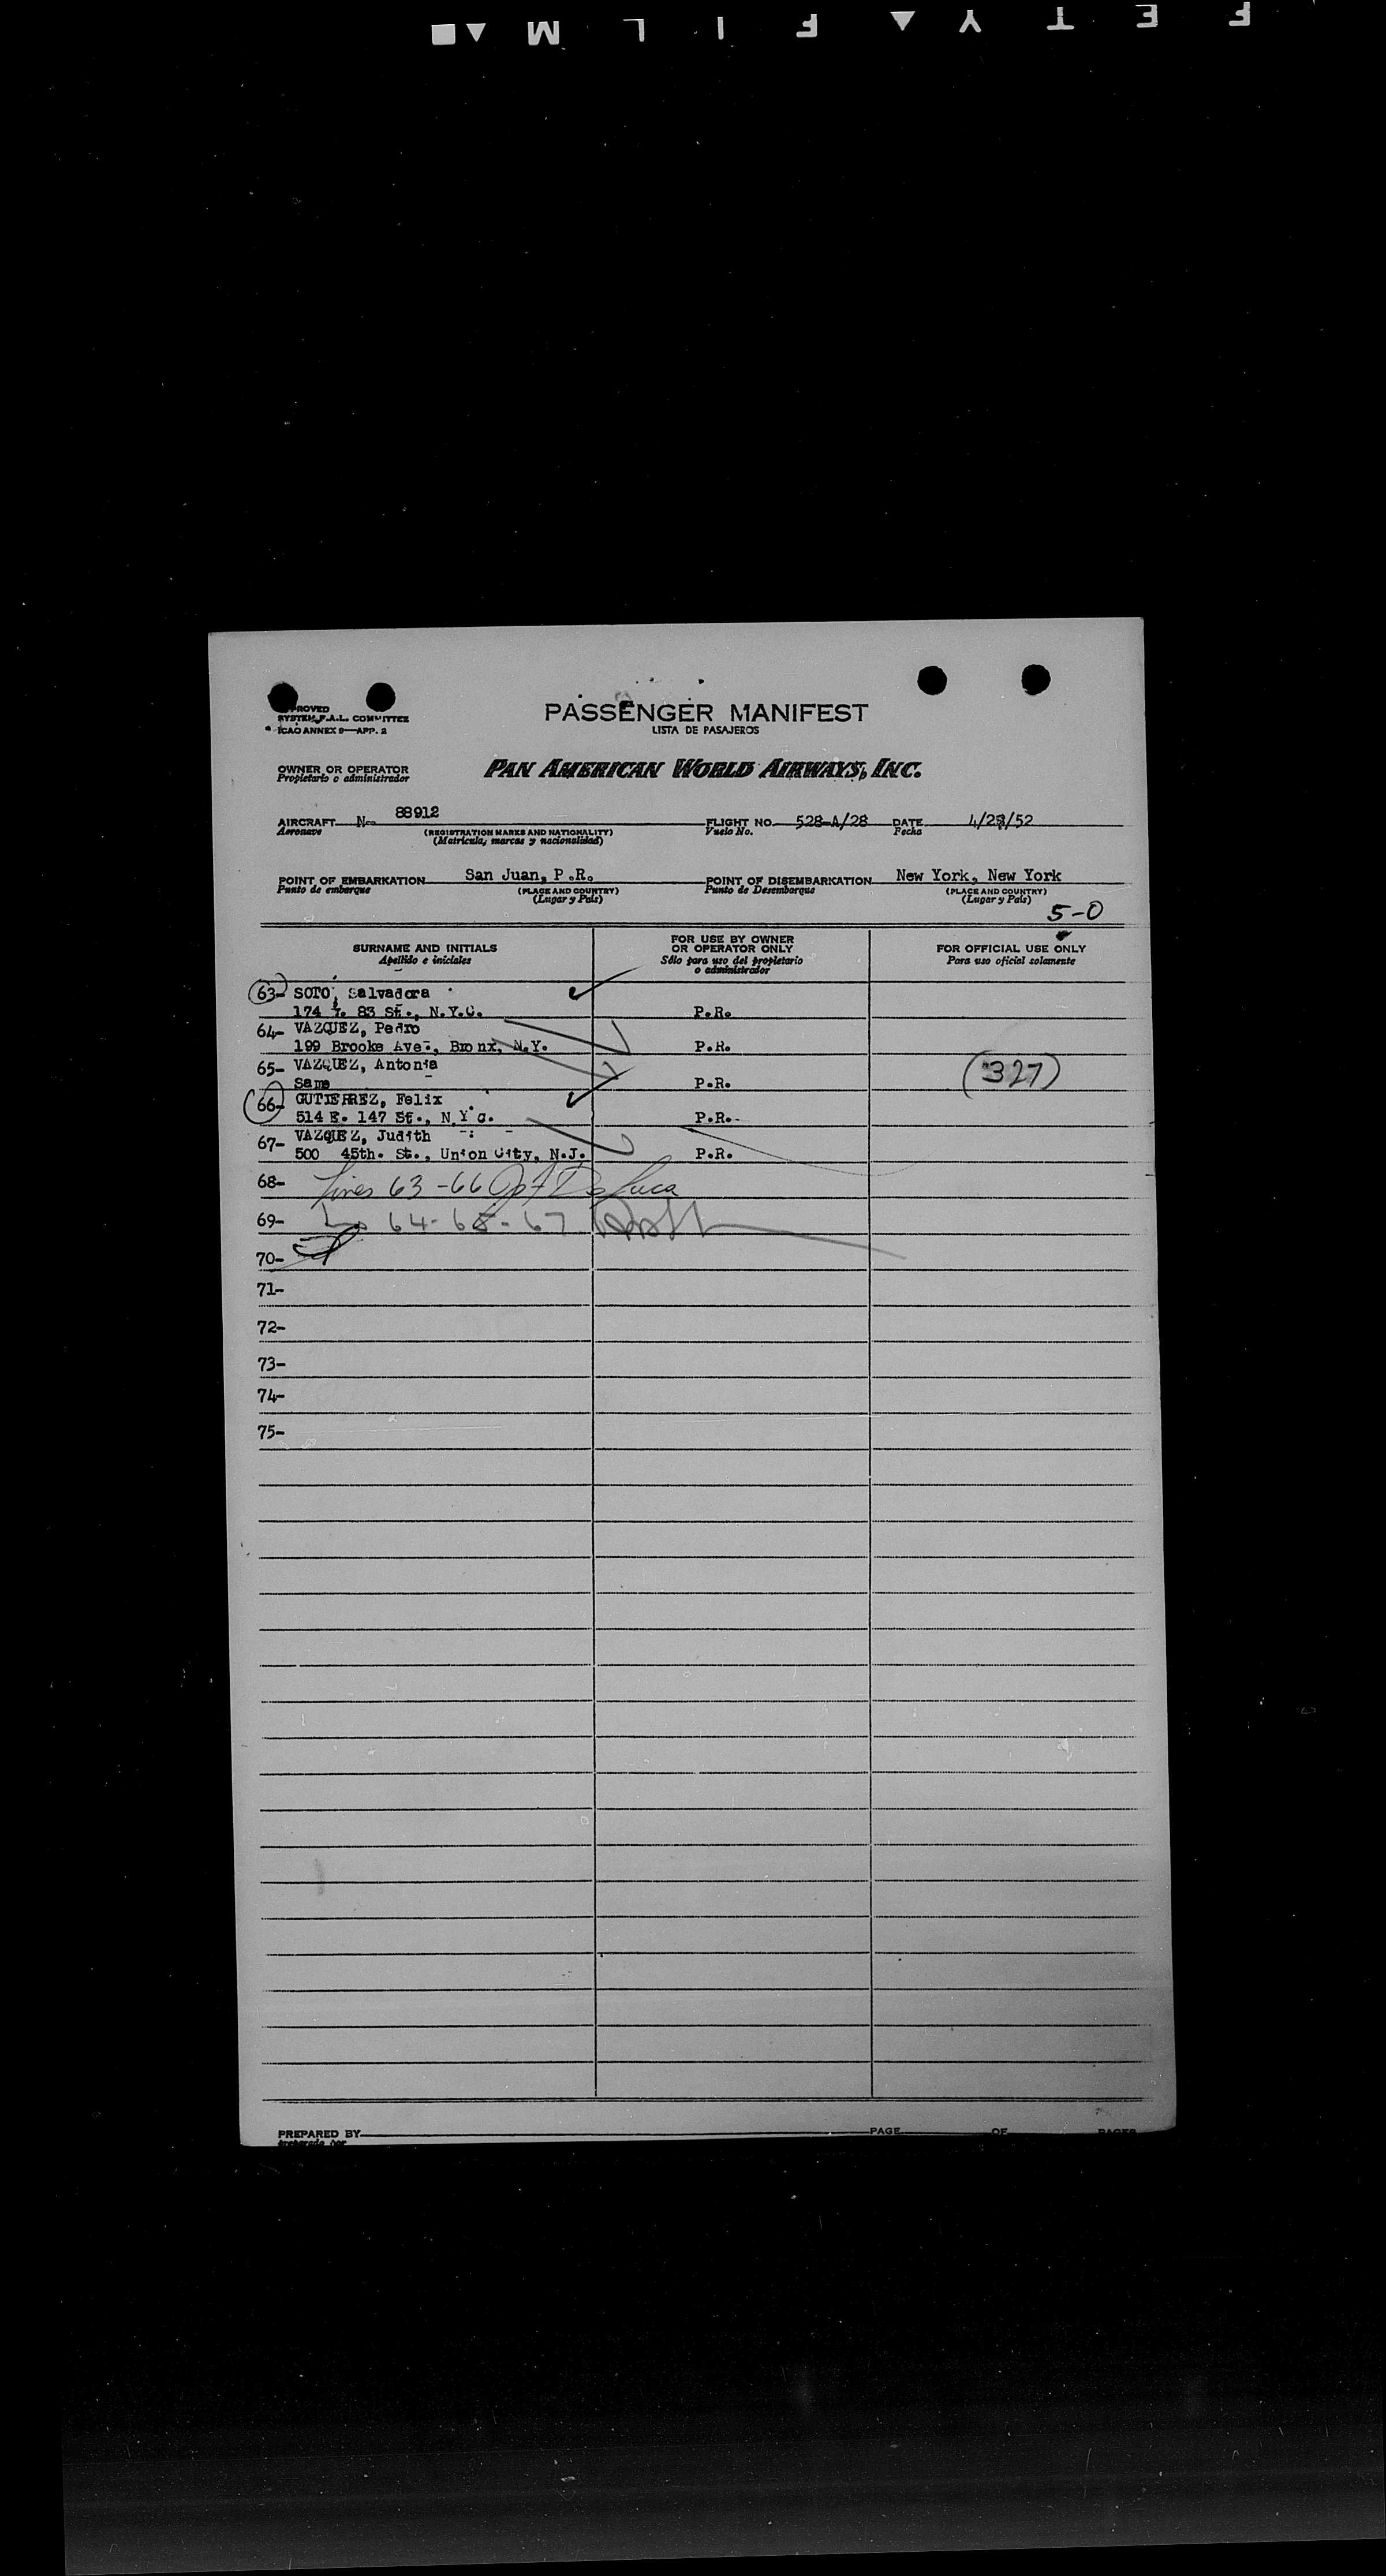 SAFETY FILM
PROVED
SYSTEM F.A.L. COMMITTEE
ICAO ANNEX 9—APP. 2
PASSENGER MANIFEST
LISTA DE PASAJEROS
OWNER OR OPERATOR
Propietario o administrador
PAN AMERICAN WORLD AIRWAYS, INC.
AIRCRAFT N- 88912 FLIGHT NO. 528-A/28 DATE 4/28/52
Aeronave (REGISTRATION MARKS AND NATIONALITY) Vuelo No. Fecha
(Matricula, marcas y nacionalidad)
POINT OF EMBARKATION San Juan, P.R. POINT OF DISEMBARKATION New York, New York
Punto de embarque (PLACE AND COUNTRY) Punto de Desembarque (PLACE AND COUNTRY)
(Lugar y País) (Lugar y País)
5-0
SURNAME AND INITIALS
Apellido e iniciales
FOR USE BY OWNER
OR OPERATOR ONLY
Sólo para uso del propietario
o administrador
FOR OFFICIAL USE ONLY
Para uso oficial solamente
63- SOTO, Salvadora
174 83 St., N.Y.C. P.R.
64- VAZQUEZ, Pedro
199 Brooke Ave., Bronx, N.Y. P.R.
65- VAZQUEZ, Antonia
Same P.R. (327)
66- GUTIERREZ, Felix
514 E. 147 St., N.Y.C. P.R.-
67- VAZQUEZ, Judith
500 45th. St., Union City, N.J. P.R.
68- Lines 63-66 De Luca
69- 64-65-67
70-
71-
72-
73-
74-
75-
PREPARED BY PAGE OF PAGES